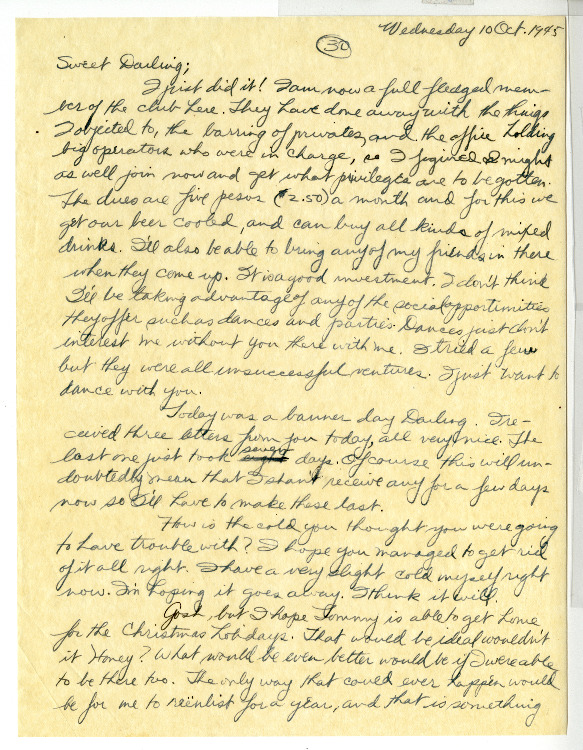 Wednesday 10 Oct. 1945
30
Sweet Darling;
I just did it! I am now a full fledged mem-
ber of the club here. They have done away with the things
I objected to, the barring of privates, and the office holding
big operators who were in charge, so I figured I might
as well join now and get what privileges are to be gotten.
The dues are five pesos ($2.50) a month and for this we
get our beer cooled, and can buy all kinds of mixed
drinks. I'll also be able to bring any of my friends in there
when they come up. It is a good investment. I don't think
I'll be taking advantage of any of the social opportunities
they offer such as dances and parties. Dances just don't
interest me without you there with me. I tried a few
but they were all unsuccessful ventures. I just want to
dance with you.
Today was a banner day Darling. I re-
ceived three letters from you today, all very nice. The
last one just took eight seven days. Of course this will un-
doubtedly mean that I shan't receive any for a few days
now so I'll have to make these last.
How is the cold you thought you were going
to have trouble with? I hope you managed to get rid
of it all right. I have a very slight cold myself right
now. I'm hoping it goes away. I think it will.
Gosh, but I hope Tommy is able to get home
for the Christmas holidays. That would be ideal wouldn't
it Honey? What would be even better would be if I were able
to be there too. The only way that could ever happen would
be for me to reënlist for a year, and that is something